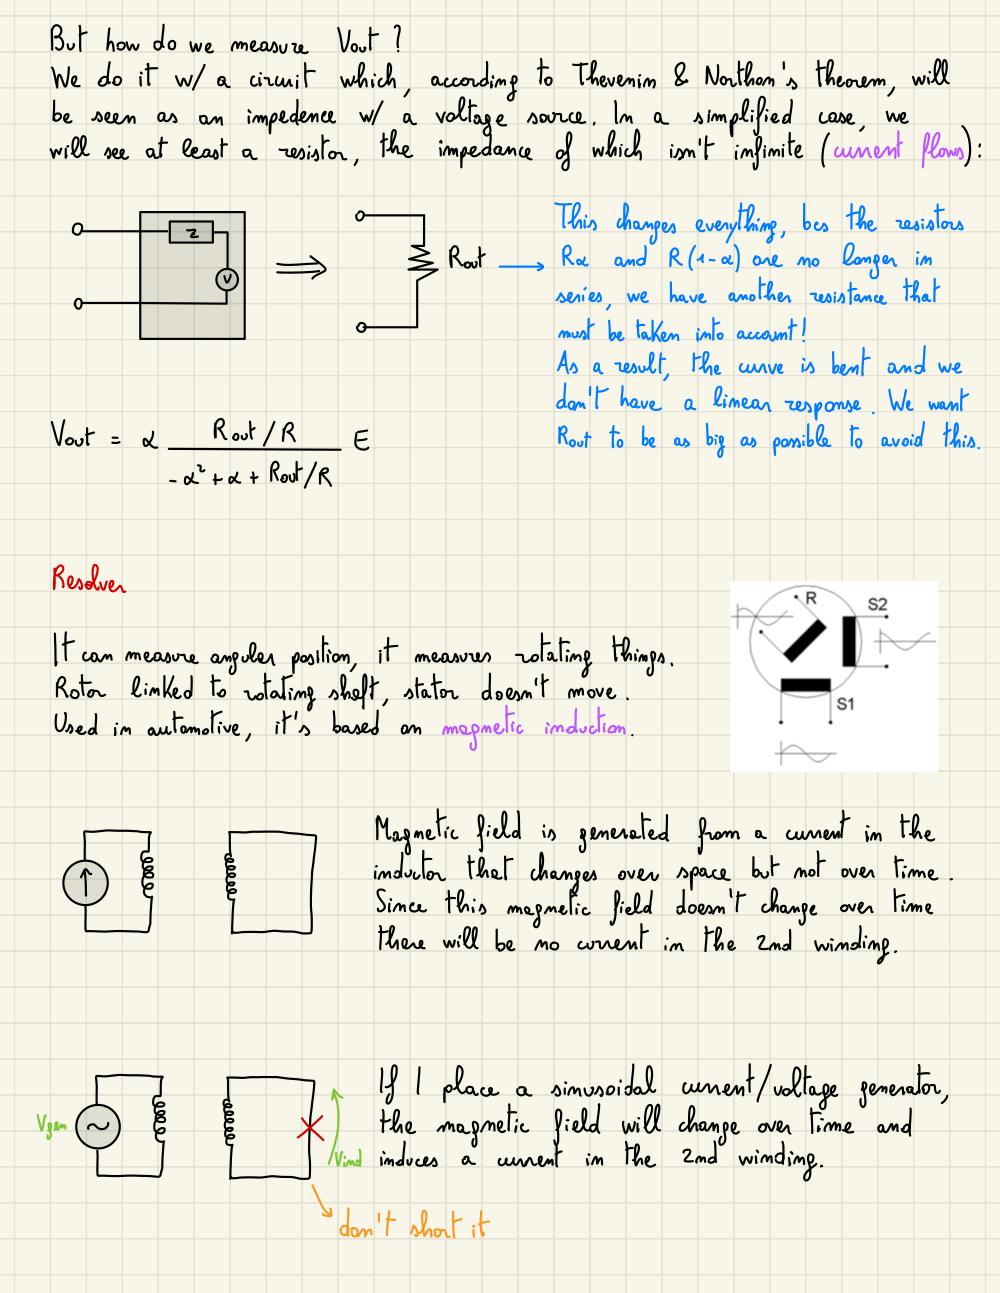 But how do we measure Vout ?
We do it w/ a circuit which, according to Thevenin & Northon's theorem, will
be seen as an impedence w/ a voltage source. In a simplified case, we
will see at least a resistor, the impedance of which isn't infinite (current flows):
Z
V
Rout
This changes everything, bcs the resistors
Rα and R(1-α) are no longer in
series, we have another resistance that
must be taken into account!
As a result, the curve is bent and we
don't have a linear response. We want
Rout to be as big as possible to avoid this.
Vout = α Rout/R E
-α² + α + Rout/R
Resolver
R
S2
S1
It can measure angular position, it measures rotating things.
Rotor linked to rotating shaft, stator doesn't move.
Used in automotive, it's based on magnetic induction.
Magnetic field is generated from a current in the
inductor that changes over space but not over time.
Since this magnetic field doesn't change over time
there will be no current in the 2nd winding.
If I place a sinusoidal current/voltage generator,
the magnetic field will change over time and
induces a current in the 2nd winding.
Vgen
Vind
don't short it